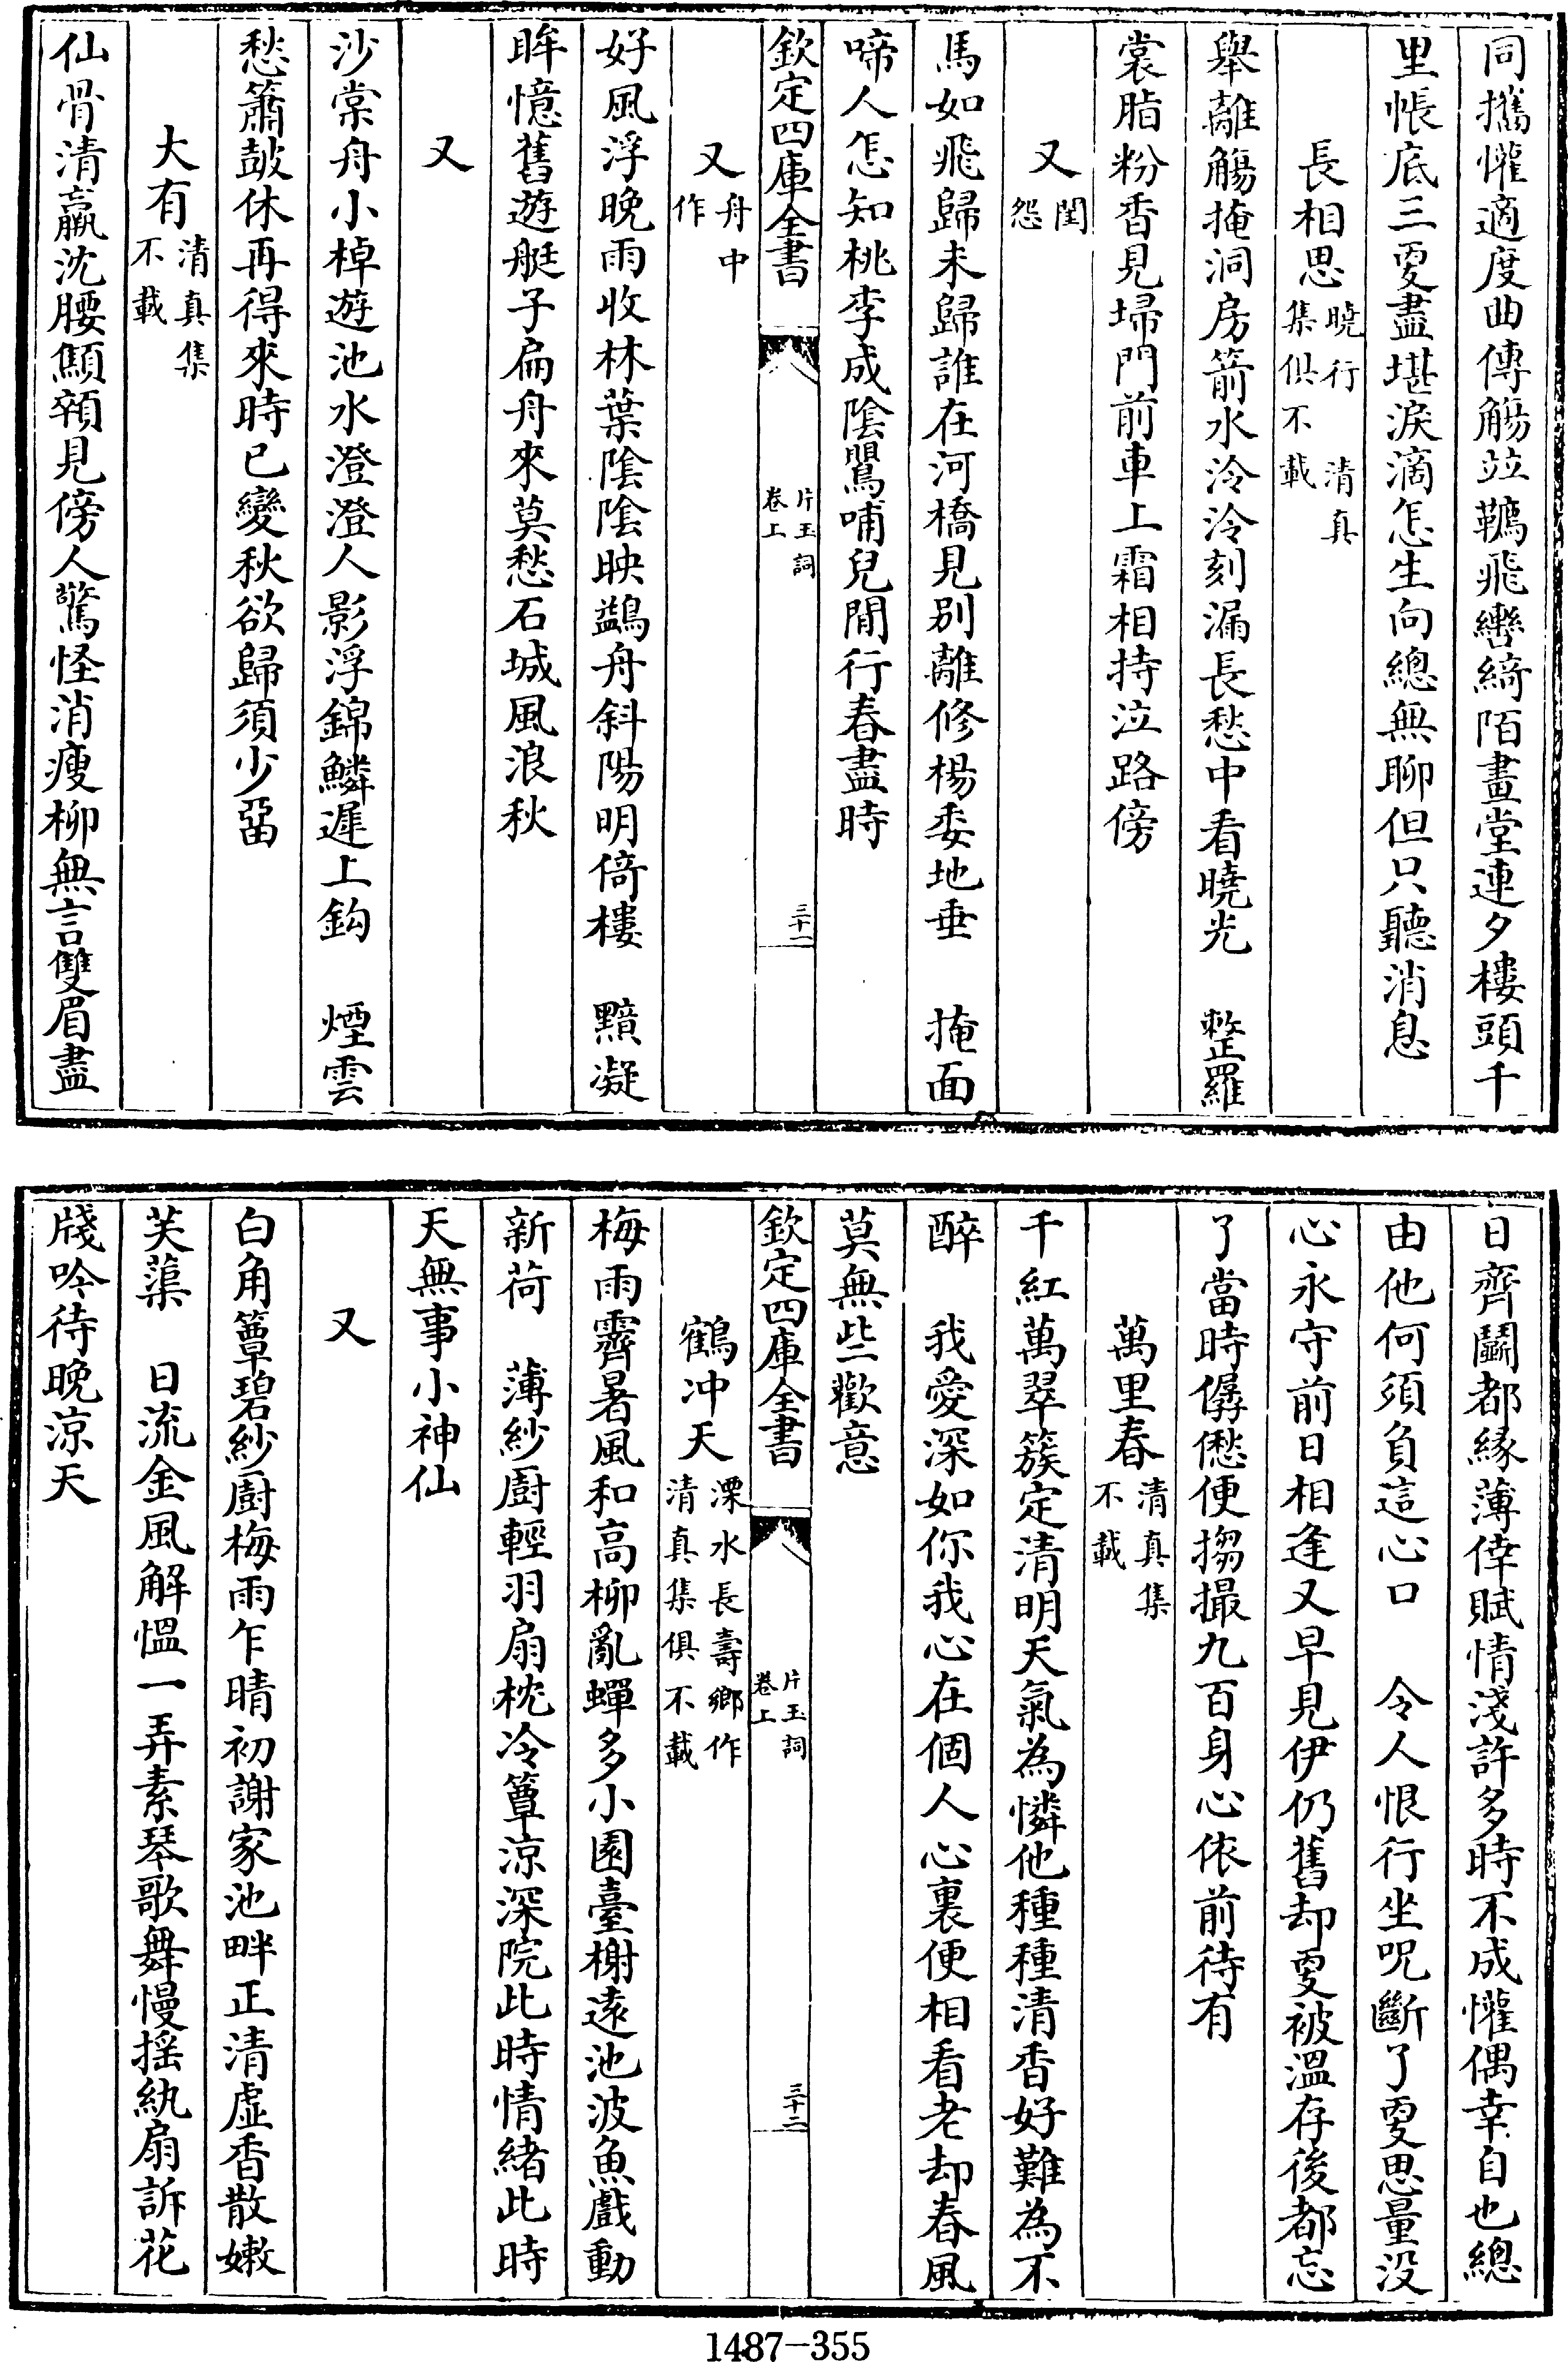 同攜懽適度曲傳觴竝韉飛轡綺陌畫堂連夕樓頭千
里帳底三更盡堪淚滴怎生向總無聊但只聽消息
長相思曉行　清真集俱不載
舉離觴掩洞房箭水泠泠刻漏長愁中看曉光　整羅
裳脂粉香見埽門前車上霜相持泣路傍
又閨怨
馬如飛歸未歸誰在河橋見別離修楊委地垂　掩面
啼人怎知桃李成陰鶯哺兒閒行春盡時
欽定四庫全書　片玉詞卷上　三十一
又舟中作
好風浮晚雨收林葉陰陰映鷁舟斜陽明倚樓　黯凝
眸憶舊遊艇子扁舟來莫愁石城風浪秋
又
沙棠舟小棹遊池水澄澄人影浮錦鱗遲上鈎　煙雲
愁簫鼓休再得來時已變秋欲歸須少留
大有清真集不載
仙骨清羸沈腰顦顇見傍人驚怪消瘦柳無言雙眉盡
日齊鬬都緣薄倖賦情淺許多時不成懽偶幸自也總
由他何須負這心口　令人恨行坐呪斷了更思量没
心永守前日相逢又早見伊仍舊却更被溫存後都忘
了當時僝僽便搊撮九百身心依前待有
萬里春清真集不載
千紅萬翠簇定清明天氣為憐他種種清香好難為不
醉　我愛深如你我心在個人心裏便相看老却春風
莫無些歡意
欽定四庫全書　片玉詞卷上　三十二
鶴冲天溧水長壽鄉作清真集俱不載
梅雨霽暑風和高柳亂蟬多小園臺榭遠池波魚戲動
新荷　薄紗厨輕羽扇枕冷簟涼深院此時情緒此時
天無事小神仙
又
白角簟碧紗厨梅雨乍晴初謝家池畔正清虛香散嫩
芙蕖　日流金風解慍一弄素琴歌舞慢搖紈扇訴花
牋吟待晚涼天
1487-355